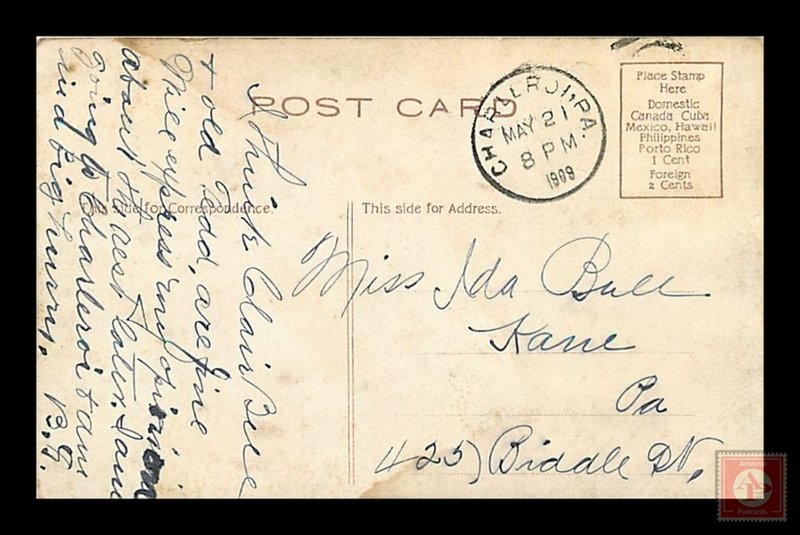 POST CARD
CHARLEROI, PA.
MAY 21
8 PM
1909
Place Stamp
Here
Domestic
Canada Cuba
Mexico, Hawaii
Philippines
Porto Rico
1 Cent
Foreign
2 Cents
This side for Correspondence.
This side for Address.
I think Clair Bell
& old Edd, are fine
Will express my opinion
about the rest later. I am
going to Charleroi & am
in a big hurry.
B.
Miss Ida Bull
Kane
Pa
425 Biddle
Antiprin
Postcards